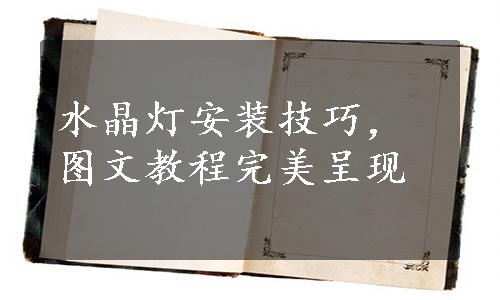 水晶灯安装技巧，
图文教程完美呈现